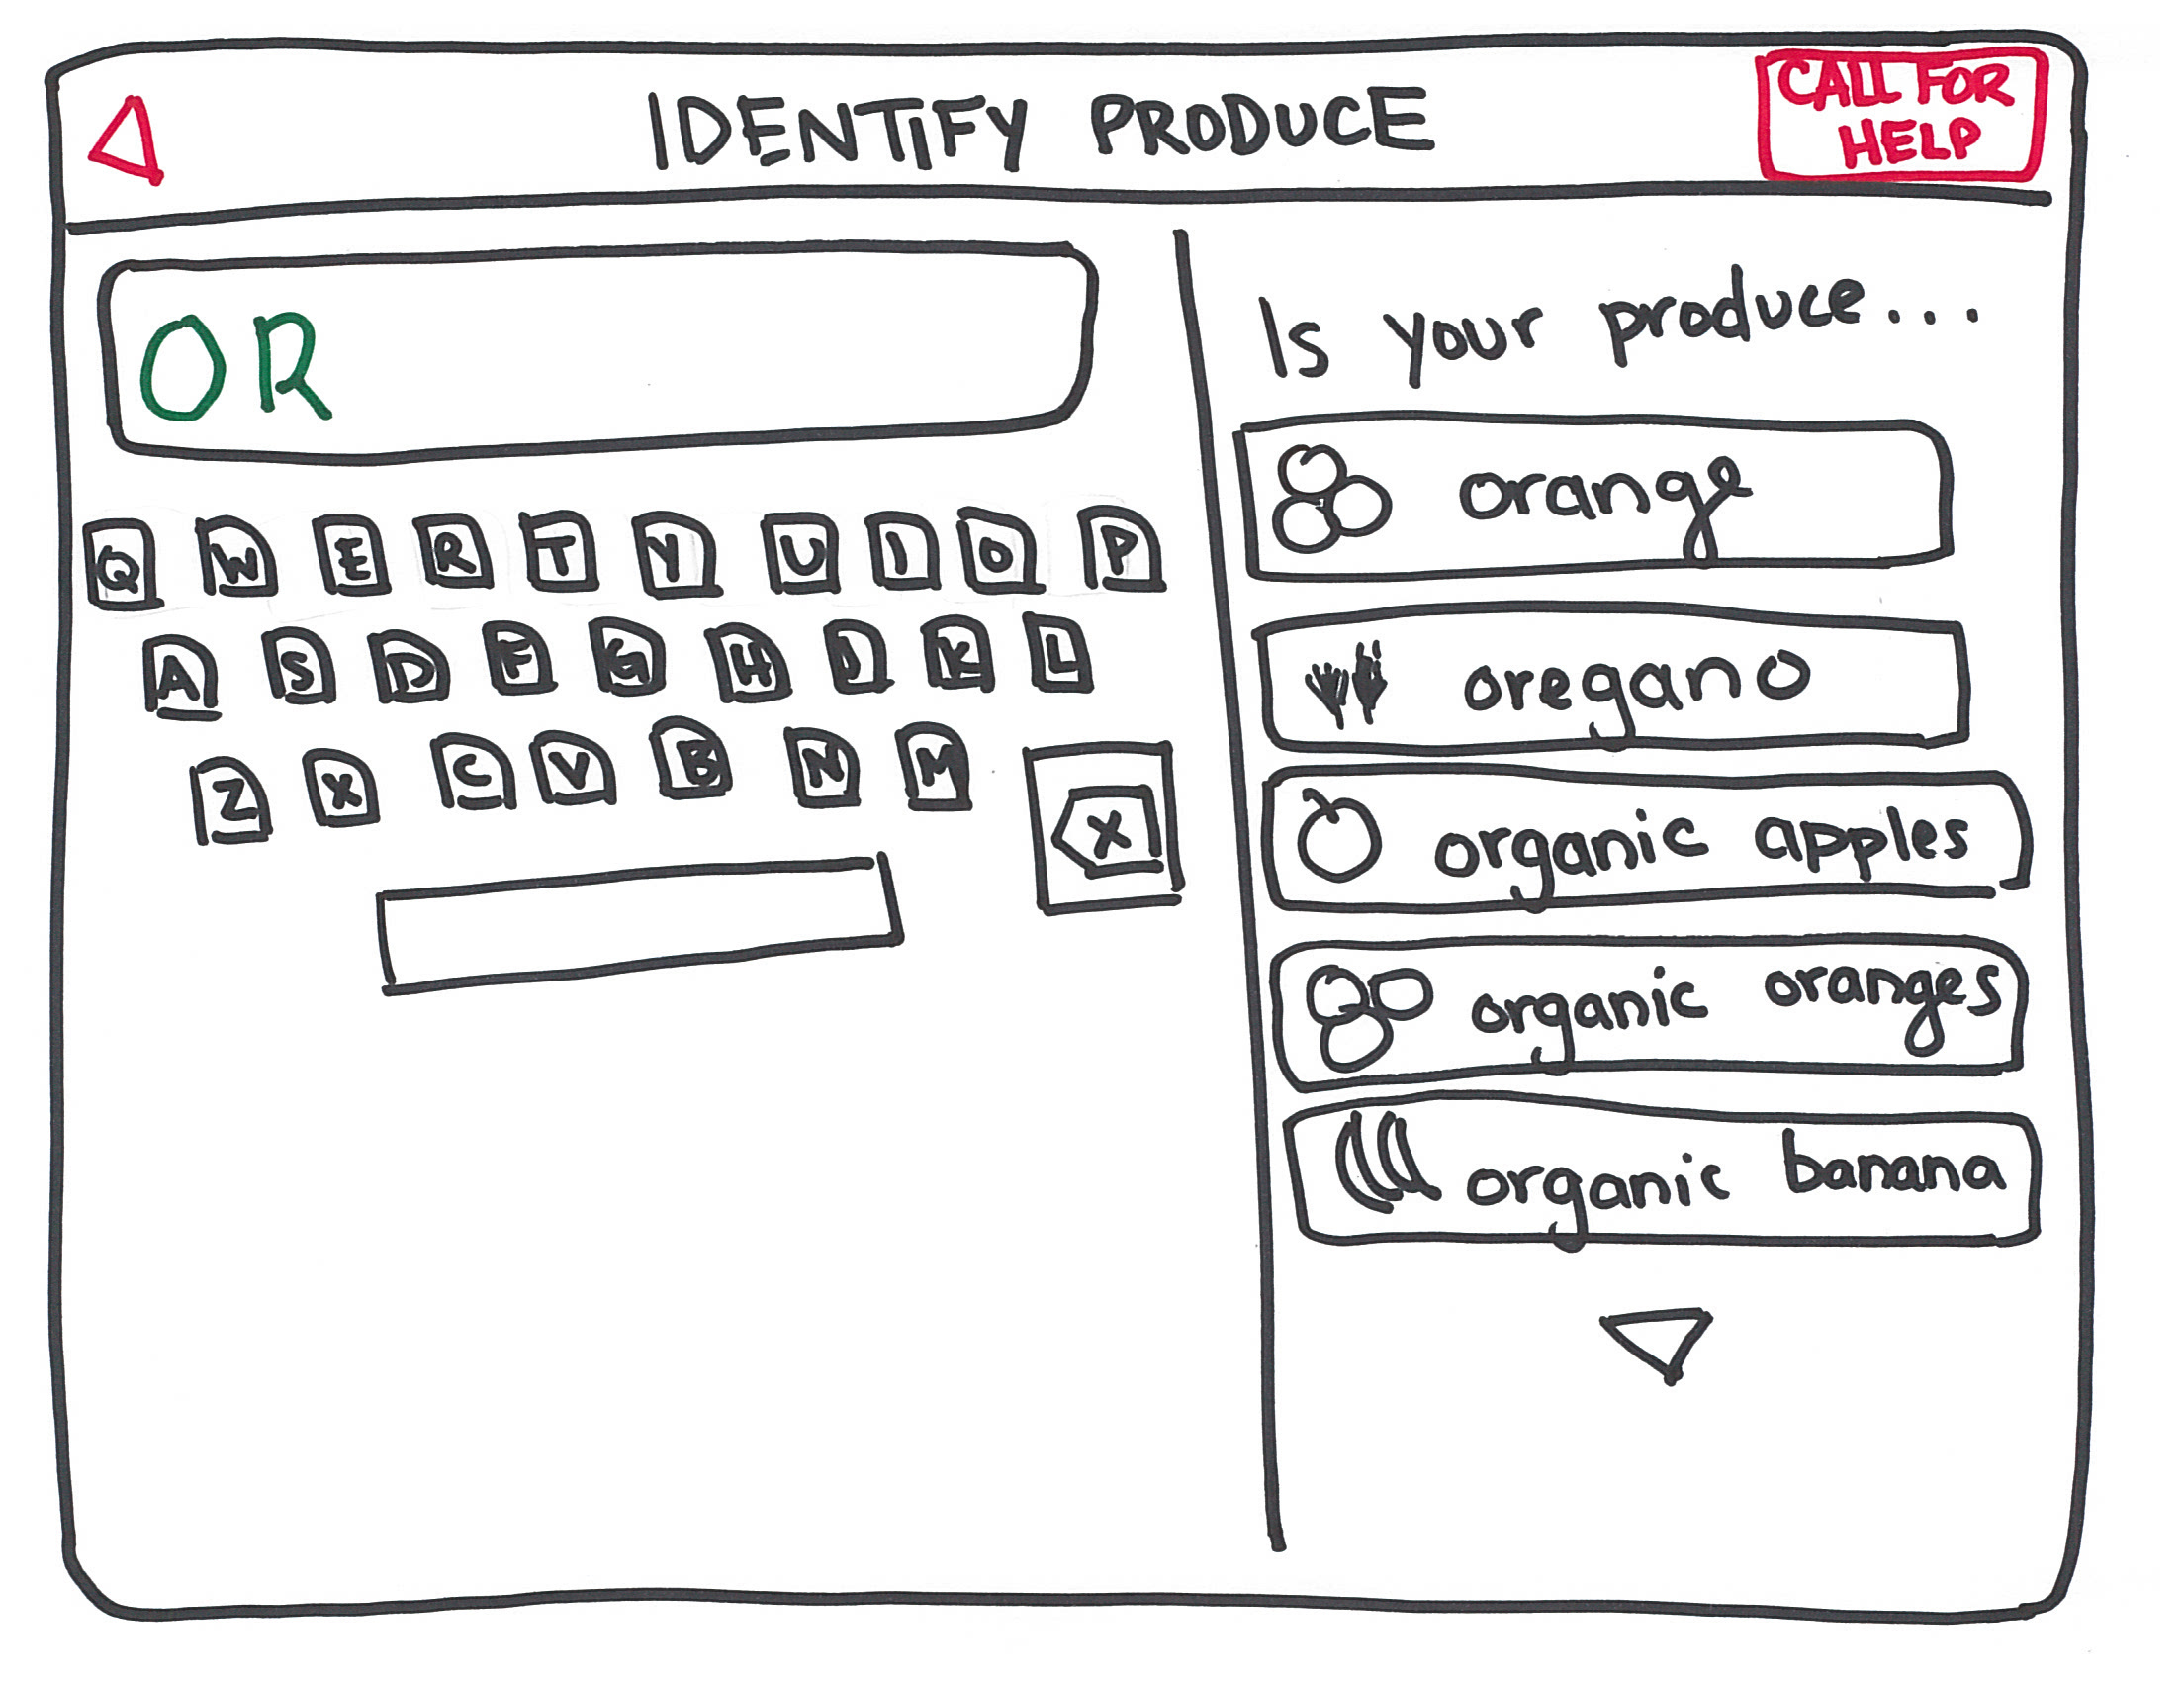 IDENTIFY PRODUCE
CALL FOR
HELP
OR
Q W E R T Y U I O P
A S D F G H J K L
Z X C V B N M
X
Is your produce...
orange
oregano
organic apples
organic oranges
organic banana